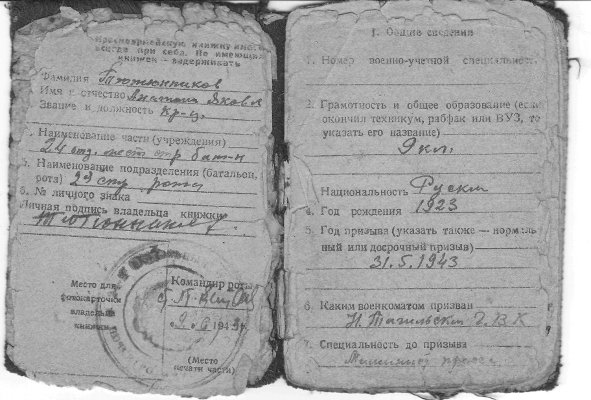 Красноармейскую книжку иметь
всегда при себе. Не имеющих
книжек — задерживать
Фамилия Тютюнников
Имя и отчество Анатолий Яковл
Звание и должность Кр-ц.
Наименование части (учреждения)
24 отд. мест стр бат-н
Наименование подразделения (батальон,
рота) 2я стр рота
6. № личного знака
Личная подпись владельца книжки
Тютюнников
Место для
фотокарточки
владельца
книжки
Командир роты
1943г
(Место
печати части)
I. Общие сведения
1. Номер военно-учетной специальност.
2. Грамотность и общее образование (если
окончил техникум, рабфак или ВУЗ, то
указать его название)
9 кл.
Национальность Руский
4. Год рождения 1923
5. Год призыва (указать также — нормаль
ный или досрочный призыв)
31.5.1943
6. Каким военкоматом призван
Н. Тагильским Г.В.К
7. Специальность до призыва